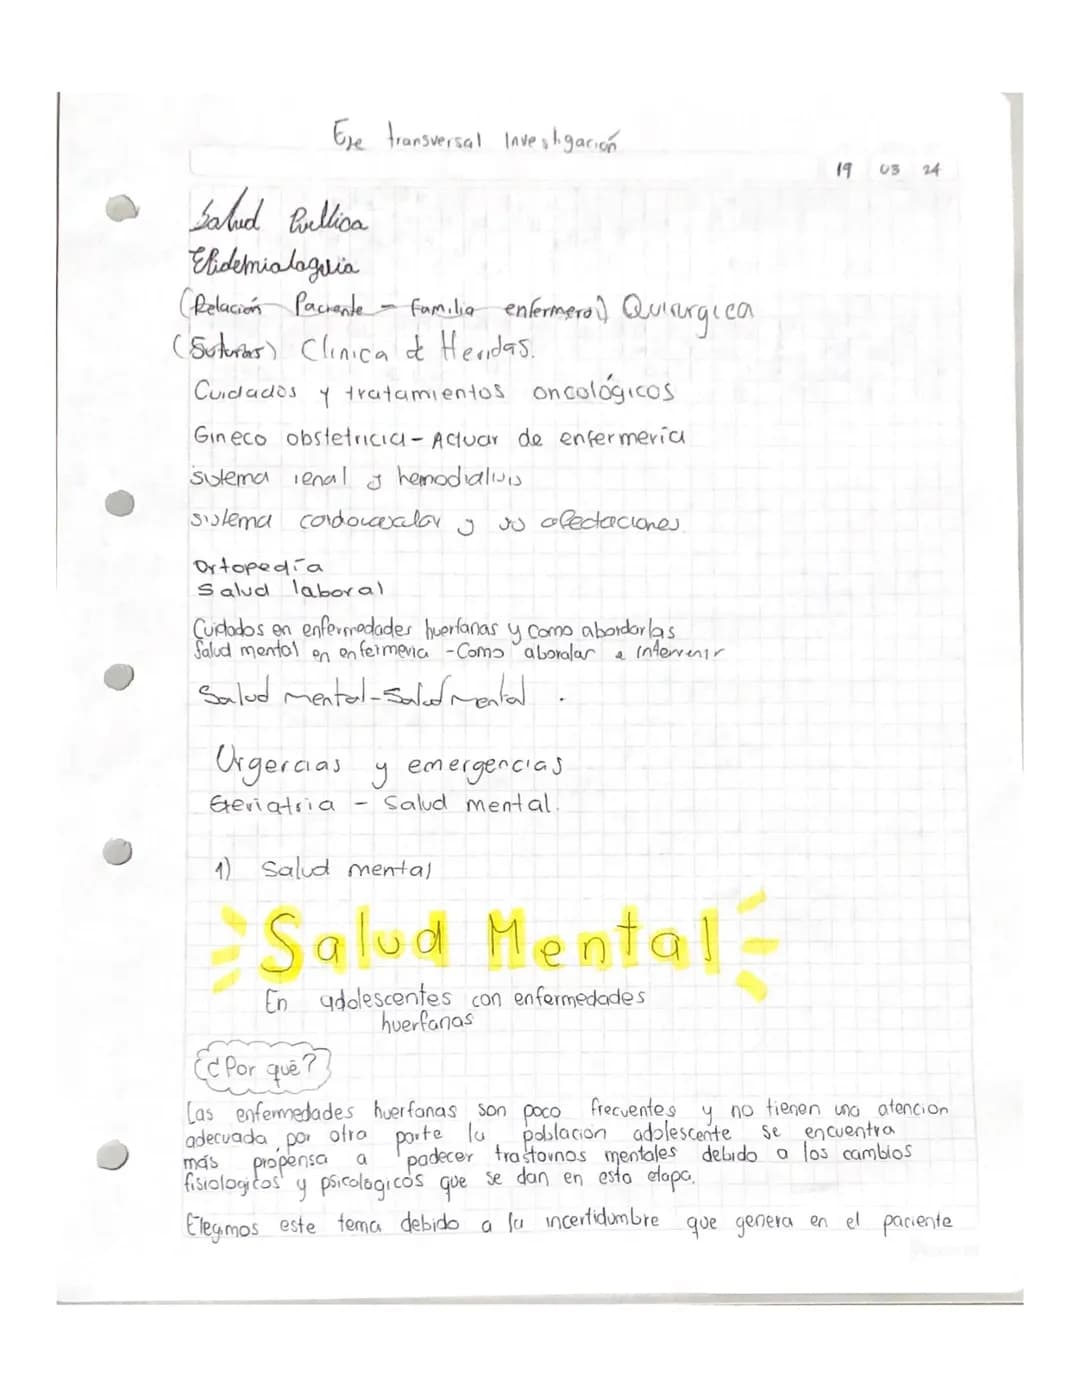 Eje transversal Investigación
19 03 24
Salud Pública
Epidemiologia
(Relación Paciente - familia enfermero) Quirurgica
(Suturas) Clinica de Heridas.
Cuidados y tratamientos oncológicos
Gineco obstetricia - Actuar de enfermeria
sistema renal y hemodialisis
sistema cardiovascular y sus afectaciones.
Ortopedia
Salud laboral
Cuidados en enfermedades huerfanas y como abordarlas
Salud mental en enfermeria - Como abordar e intervenir
Salud mental - Salud mental.
Urgencias y emergencias
Geriatria - Salud mental.
1) Salud mental
Salud Mental
En adolescentes con enfermedades
huerfanas
¿Por qué?
Las enfermedades huerfanas son poco frecuentes y no tienen una atencion
adecuada, por otra parte la poblacion adolescente se encuentra
más propensa a padecer trastornos mentales debido a los cambios
fisiologicos y psicologicos que se dan en esta etapa.
Elegimos este tema debido a la incertidumbre que genera en el paciente